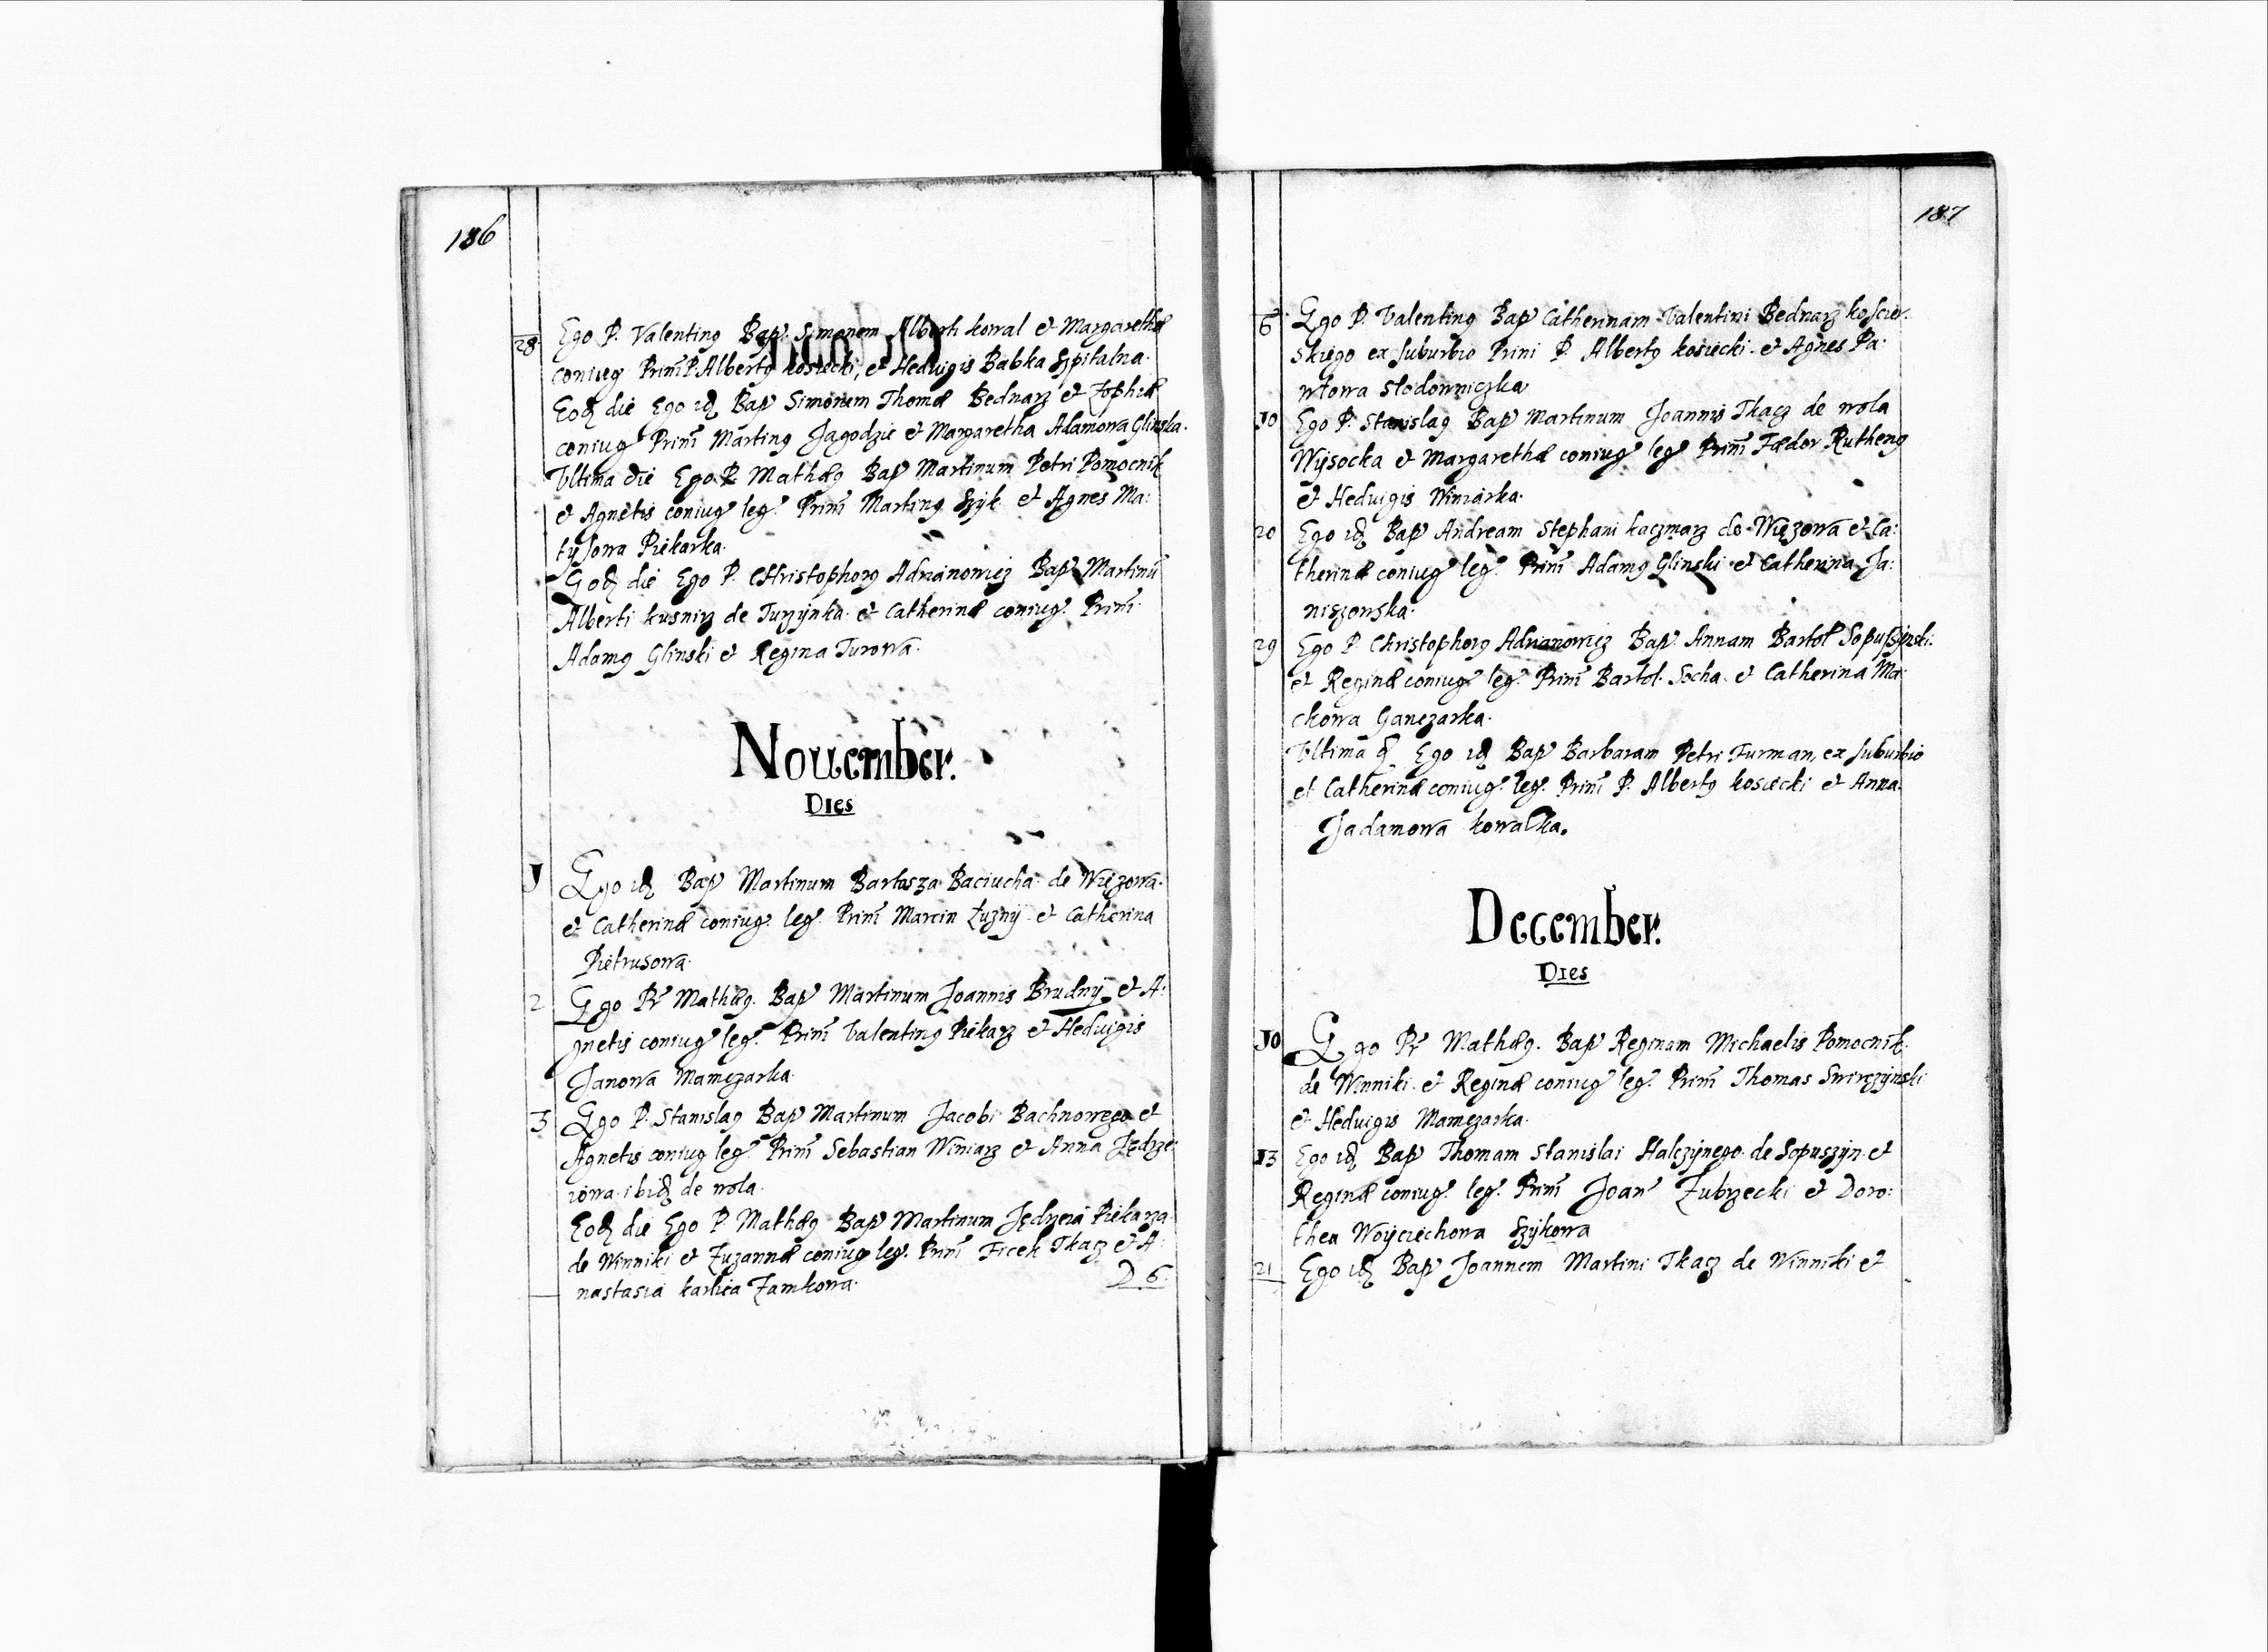 186
28 Ego P. Valentinꝰ Bap. Simonem Alberti kowal et Margarethæ
coniug Prim̃ P. Albertꝰ kosiecki, et Hedvigis Babka Szpitalna.
Eod̃ die Ego id̃ Bap Simonem Thomæ Bednarz et Zophiæ
coniug Prim̃ Martinꝰ Jagodzic et Margaretha Adamowa Glinska.
Vltima die Ego P. Mathæꝰ Bap Martinum Petri Pomocnik
et Agnetis coniug leg. Prim̃ Martinꝰ Szyk et Agnes Ma:
tysowa Piekarka.
Eod̃ die Ego P. Christophorꝰ Adrianowicz Bap Martinũ
Alberti kusnirz de Turzynka et Catherinæ coniug. Prim̃
Adamꝰ Glinski et Regina Turowa.
Nouember.
Dies
1 Ego id̃ Bap Martinum Bartosza Baciucha de Więzowa.
et Catherinæ coniug. leg. Prim̃ Marcin Łuzny et Catherina
Pietrusowa.
2 Ego Pr̃ Mathæꝰ. Bap Martinum Joannis Brudny et A:
gnetis coniug leg. Prim̃ Valentinꝰ Piekarz et Hedvigis
Janowa Mamczarka.
3 Ego P. Stanislaꝰ Bap Martinum Jacobi Bachnowego et
Agnetis coniug leg. Prim̃ Sebastian Winiarz et Anna Jędrze:
iowa ibid̃ de wola.
Eod̃ die Ego P. Mathæꝰ Bap Martinum Jędrzeia Piekarza
de Winniki et Zuzannæ coniug leg. Prim̃ Ficek Tkacz et A:
nastasia karlica Zamkowa.
D 6.
187
6 Ego P. Valentinꝰ Bap Catherinam Valentini Bednarz koscie:
skiego ex suburbio Prim̃ P. Albertꝰ kosiecki. et Agnes Pa:
wlowa Slodowniczka
10 Ego P. Stanislaꝰ Bap Martinum Joannis Tkacz de wola
Wysocka et Margarethæ coniug leg Prim̃ Fædor Ruthenꝰ
et Hedvigis Winiarka.
20 Ego id̃ Bap Andream Stephani kaczmarz de Więzowa et Ca:
therinæ coniug leg. Prim̃ Adamꝰ Glinski et Catherina Ja:
niszowska.
29 Ego P. Christophorꝰ Adrianowicz Bap. Annam Bartoł Sopuszynski.
et Reginæ coniug leg. Prim̃ Bartol. Socha et Catherina Ma:
ckowa Ganczarka.
Vltima Ego id̃ Bap Barbaram Petri Furman, ex suburbio
et Catherinæ coniug. leg. Prim̃ P. Albertꝰ kosiecki et Anna.
Jadamowa kowalka.
December.
Dies
10 Ego Pr̃ Mathæꝰ. Bap Reginam Michaelis Pomocnik.
de Winniki. et Reginæ coniug leg. Prim̃ Thomas Swirczynski
et Hedvigis Mamczarka.
13 Ego id̃ Bap Thomam Stanislai Halczynego de Sopuszyn et
Reginæ coniug. leg. Prim̃ Joan Zubrzecki et Doro:
thea Woyciechowa Szykowa
21 Ego id̃ Bap Joannem Martini Tkacz de Winniki et